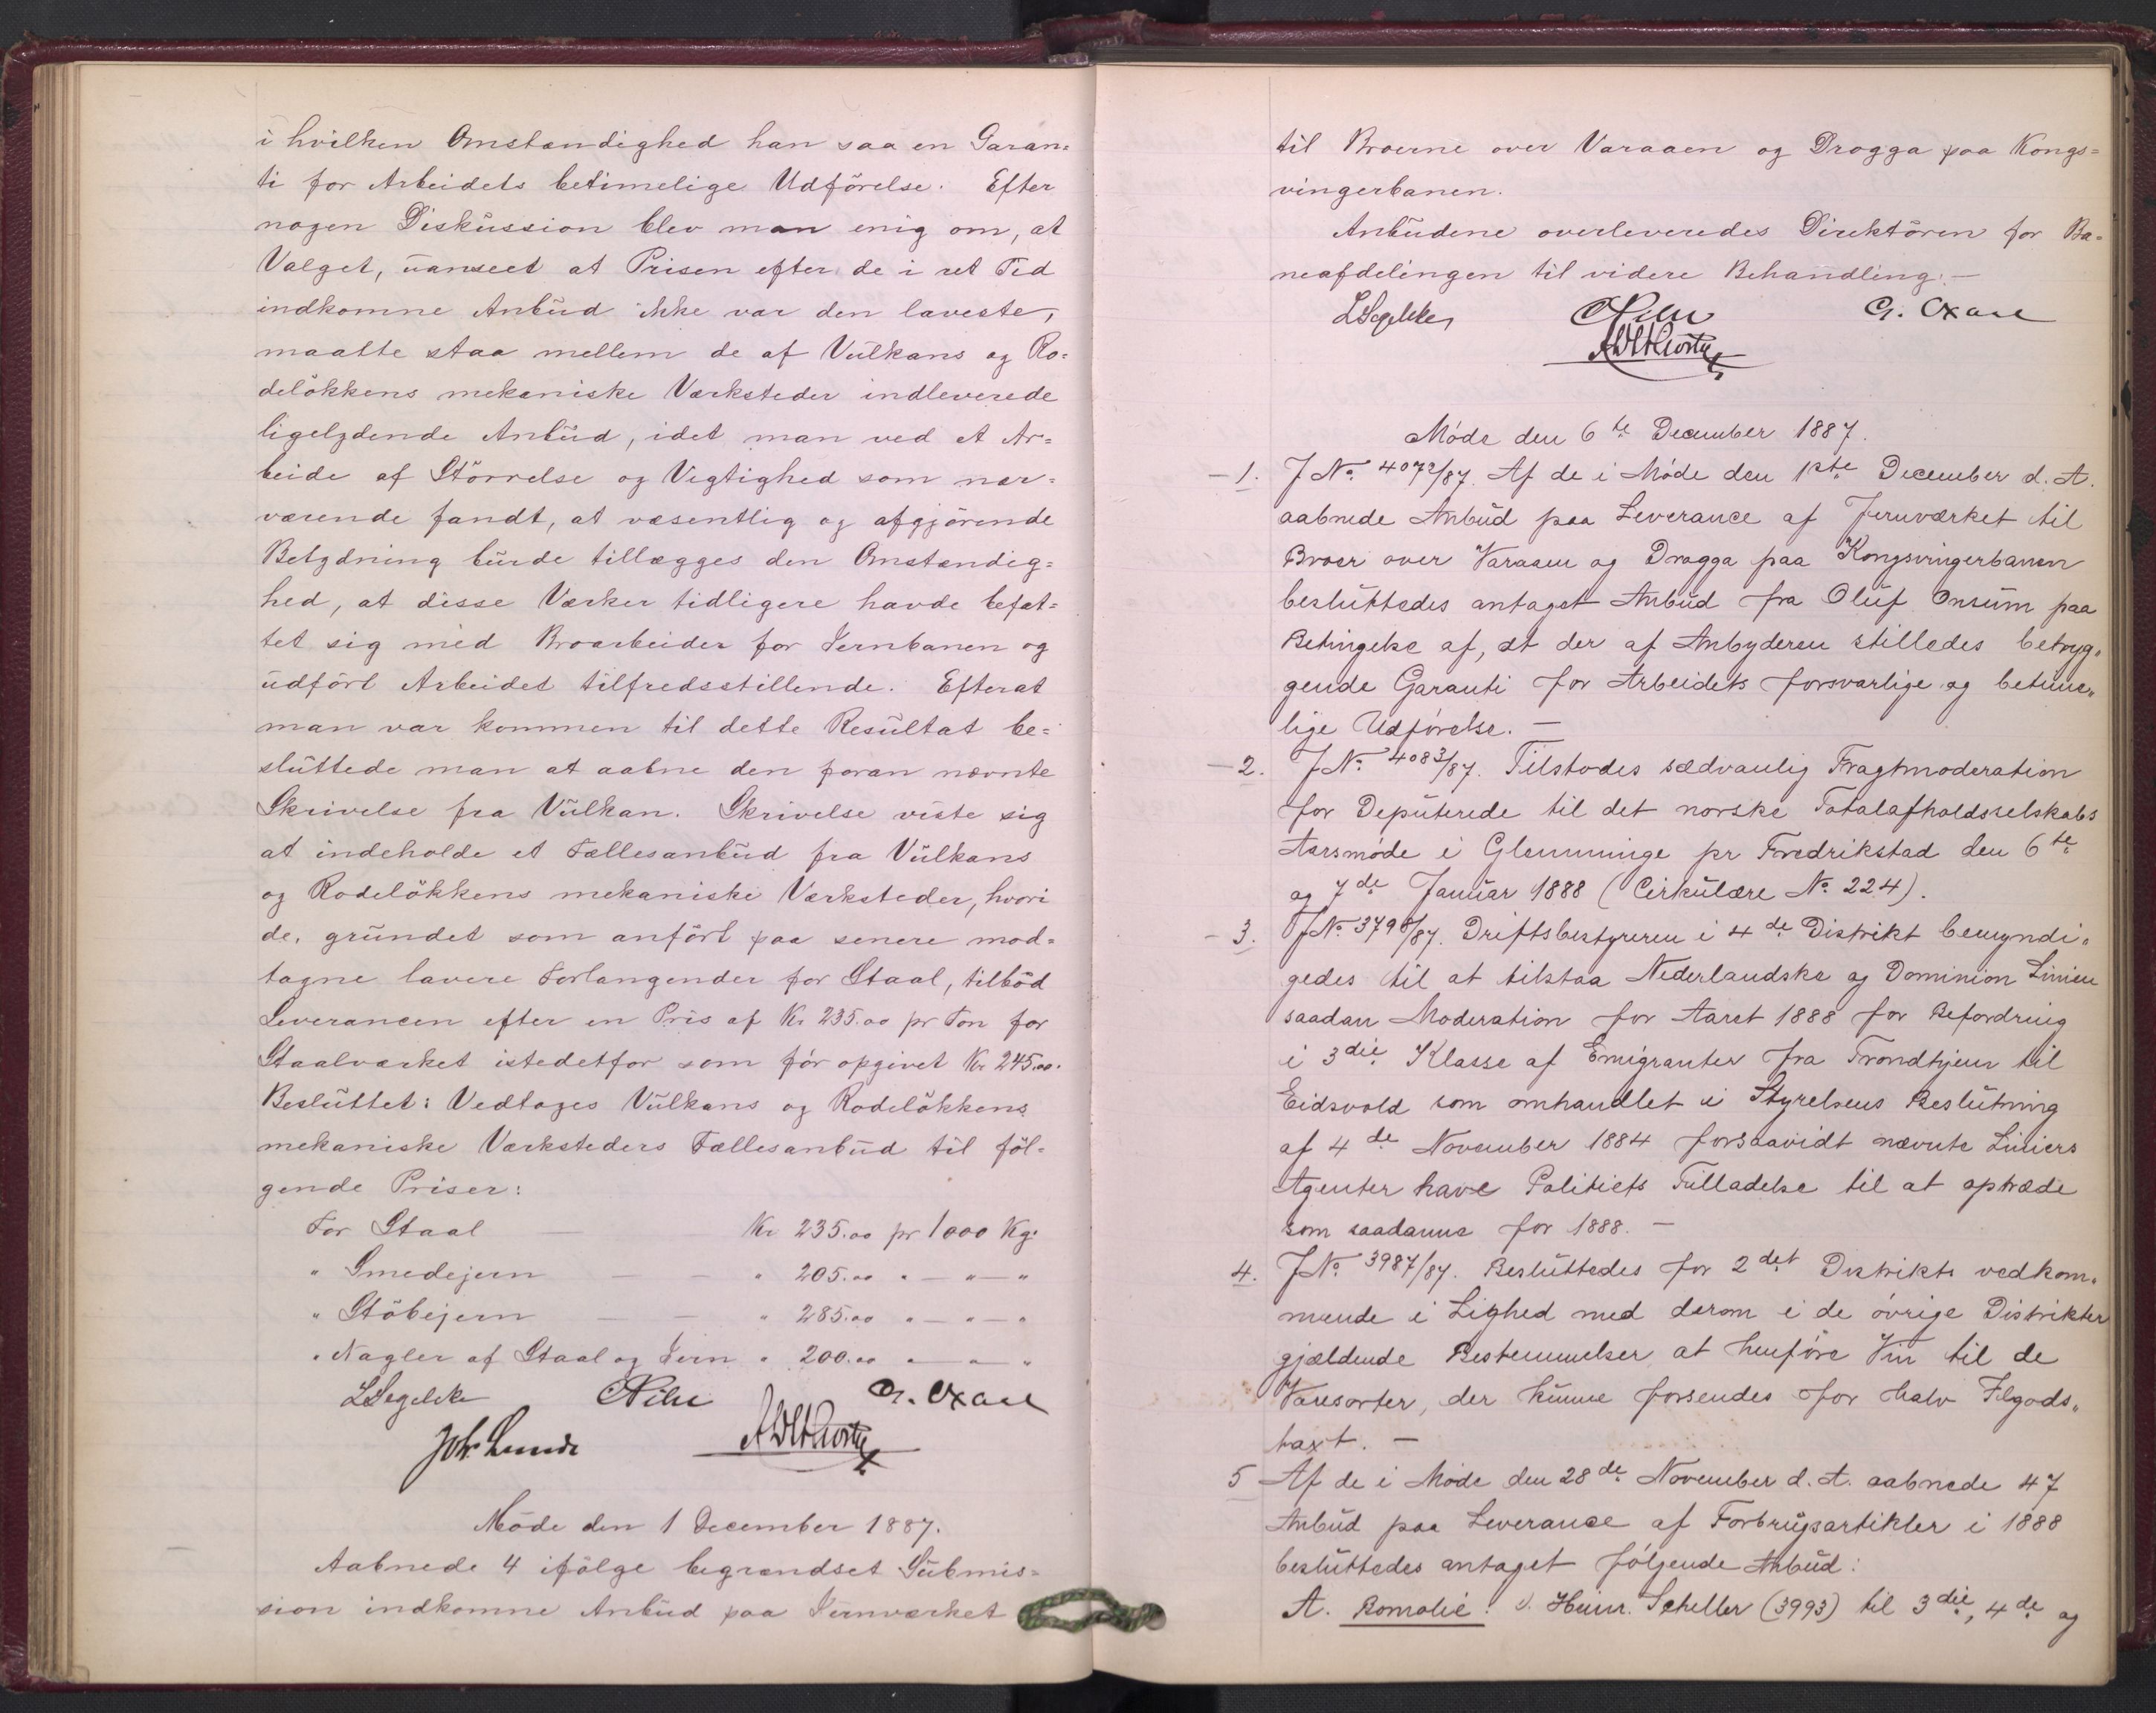 i hvilken Omstændighed han saa en Garan=
ti for Arbeidets betimelige Udförelse. Efter
nogen Diskussion blev man enig om, at
Valget, uanseet at Prisen efter de i ret Tid
indkomne Anbud ikke var den laveste,
maatte staa mellem de af Vulkans og Ro=
delökkens mekaniske Værksteder indleverede
ligelydende Anbud, idet man ved et Ar=
beide af Störrelse og Vigtighed som nær=
værende fandt, at væsentlig og afgjörende
Betydning burde tillægges den Omstændig=
hed, at disse Værker tidligere havde befat=
tet sig med Broarbeider for Jernbanen og
udfört Arbeidet tilfredsstillende. Efterat
man var kommen til dette Resultat be=
sluttede man at aabne den foran nævnte
Skrivelse fra Vulkan. Skrivelse viste sig
at indeholde et Fællesanbud fra Vulkans
og Rodelökkens mekaniske Værksteder, hvori
de, grundet som anfört paa senere mod=
tagne lavere Forlangender for Staal, tilböd
Leverancen efter en Pris af Kr 235.00 pr Ton for
Staalværket istedetfor som för opgivet Kr 245.00.
Besluttet: Vedtages Vulkans og Rodelökkens
mekaniske Værksteders Fællesanbud til föl=
gende Priser:
For Staal — Kr 235.00 pr 1000 Kg.
" Smedejern — — " 205.00 " — " — "
" Stöbejern — — " 285.00 " — " — "
" Nagler af Staal og Jern " 200.00 " — " — "
LSegelcke CPihl G. Oxaal
Joh. Lunde
Möde den 1 December 1887.
Aabnede 4 ifölge begrændset Submis=
sion indkomne Anbud paa Jernværket
til Broerne over Varaaen og Drogga paa Kongs=
vingerbanen.
Anbudene overleveredes Direktören for Ba=
neafdelingen til videre Behandling. —
LSegelcke CPihl G. Oxaal
Möde den 6te December 1887.
1. J No 4072/87. Af de i Möde den 1ste December d. A.
aabnede Anbud paa Leverance af Jernværket til
Broer over Varaaen og Drogga paa Kongsvingerbanen
besluttedes antaget Anbud fra Oluf Onsum paa
Betingelse af, at der af Anbyderen stilledes betryg„
gende Garanti for Arbeidets forsvarlige og betime„
lige Udförelse. —
2. J No 4083/87. Tilstodes sædvanlig Fragtmoderation
for Deputerede til det norske Totalafholdsselskabs
Aarsmöde i Glemminge pr Fredrikstad den 6te
og 7de Januar 1888 (Cirkulære No 224).
3. J No 3798/87. Driftsbestyreren i 4de Distrikt bemyndi„
gedes til at tilstaa Nederlandske og Dominion Linien
saadan Moderation for Aaret 1888 for Befordring
i 3die Klasse af Emigranter fra Trondhjem til
Eidsvold som omhandlet i Styrelsens Beslutning
af 4de November 1884 forsaavidt nævnte Liniers
Agenter have Politiets Tilladelse til at optræde
som saadanne for 1888. —
4. J No 3987/87. Besluttedes for 2det Distrikts vedkom„
mende i Lighed med derom i de övrige Distrikter
gjældende Bestemmelser at henföre Vin til de
Varesorter, der kunne forsendes for halv Ilgods„
taxt. —
5 Af de i Möde den 28de November d. A. aabnede 47
Anbud paa Leverance af Forbrugsartikler i 1888
besluttedes antaget fölgende Anbud:
A. Bomolie: Heinr. Scheller (3993) til 3die, 4de og